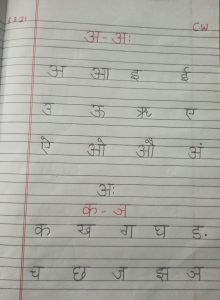 C.W
अ - अः
अ आ इ ई
उ ऊ ऋ ए
ऐ ओ औ अं
अः
क - ञ
क ख ग घ ङ
च छ ज झ ञ